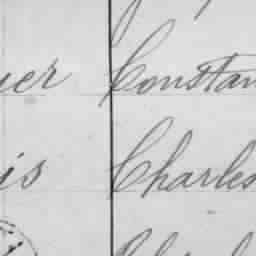 uer Constan
is Charles